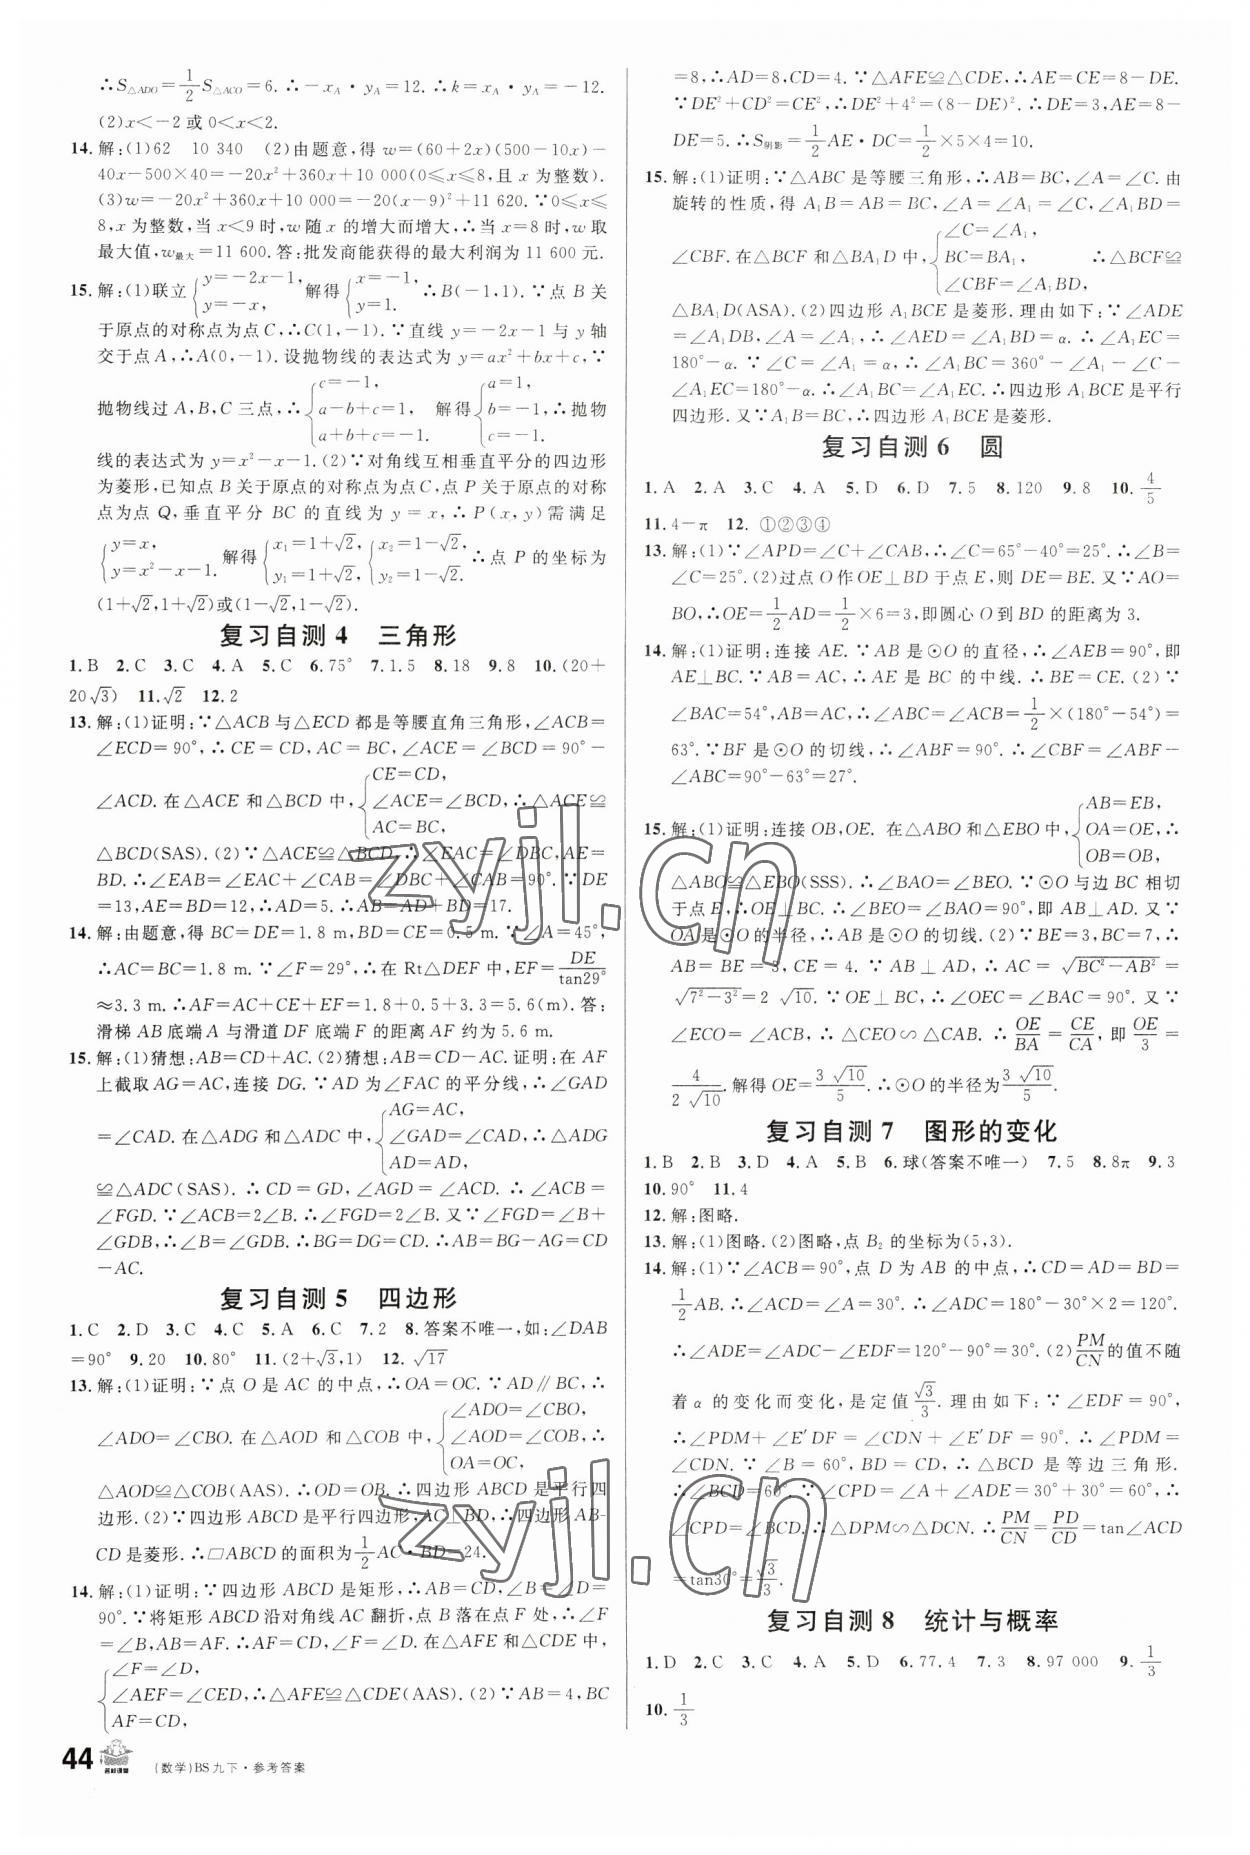 ∴S△ADO=1/2S△ACO=6.∴-xA·yA=12.∴k=xA·yA=-12.
(2)x<-2 或 0<x<2.
14.解:(1)62 10 340 (2)由题意,得 w=(60+2x)(500-10x)-
40x-500×40=-20x²+360x+10 000(0≤x≤8,且 x 为整数).
(3)w=-20x²+360x+10 000=-20(x-9)²+11 620.∵0≤x≤
8,x 为整数,当 x<9 时,w 随 x 的增大而增大,∴当 x=8 时,w 取
最大值,w最大=11 600.答:批发商能获得的最大利润为 11 600 元.
15.解:(1)联立{y=-2x-1, y=-x, 解得{x=-1, y=1. ∴B(-1,1).∵点 B 关
于原点的对称点为点 C,∴C(1,-1).∵直线 y=-2x-1 与 y 轴
交于点 A,∴A(0,-1).设抛物线的表达式为 y=ax²+bx+c,∵
抛物线过 A,B,C 三点,∴{c=-1, a-b+c=1, a+b+c=-1. 解得{a=1, b=-1, c=-1. ∴抛物
线的表达式为 y=x²-x-1.(2)∵对角线互相垂直平分的四边形
为菱形,已知点 B 关于原点的对称点为点 C,点 P 关于原点的对称
点为点 Q,垂直平分 BC 的直线为 y=x,∴P(x,y)需满足
{y=x, y=x²-x-1. 解得{x₁=1+√2, y₁=1+√2, {x₂=1-√2, y₂=1-√2. ∴点 P 的坐标为
(1+√2,1+√2)或(1-√2,1-√2).
复习自测 4 三角形
1.B 2.C 3.C 4.A 5.C 6.75° 7.1.5 8.18 9.8 10.(20+
20√3) 11.√2 12.2
13.解:(1)证明:∵△ACB 与△ECD 都是等腰直角三角形,∠ACB=
∠ECD=90°,∴CE=CD,AC=BC,∠ACE=∠BCD=90°-
∠ACD.在△ACE 和△BCD 中,{CE=CD, ∠ACE=∠BCD, AC=BC, ∴△ACE≌
△BCD(SAS).(2)∵△ACE≌△BCD,∴∠EAC=∠DBC,AE=
BD.∴∠EAB=∠EAC+∠CAB=∠DBC+∠CAB=90°.∵DE
=13,AE=BD=12,∴AD=5.∴AB=AD+BD=17.
14.解:由题意,得 BC=DE=1.8 m,BD=CE=0.5 m.∵∠A=45°,
∴AC=BC=1.8 m.∵∠F=29°,∴在 Rt△DEF 中,EF=DE/tan29°
≈3.3 m.∴AF=AC+CE+EF=1.8+0.5+3.3=5.6(m).答:
滑梯 AB 底端 A 与滑道 DF 底端 F 的距离 AF 约为 5.6 m.
15.解:(1)猜想:AB=CD+AC.(2)猜想:AB=CD-AC.证明:在 AF
上截取 AG=AC,连接 DG.∵AD 为∠FAC 的平分线,∴∠GAD
=∠CAD.在△ADG 和△ADC 中,{AG=AC, ∠GAD=∠CAD, AD=AD, ∴△ADG
≌△ADC(SAS).∴CD=GD,∠AGD=∠ACD.∴∠ACB=
∠FGD.∵∠ACB=2∠B.∴∠FGD=2∠B.又∵∠FGD=∠B+
∠GDB,∴∠B=∠GDB.∴BG=DG=CD.∴AB=BG-AG=CD
-AC.
复习自测 5 四边形
1.C 2.D 3.C 4.C 5.A 6.C 7.2 8.答案不唯一,如:∠DAB
=90° 9.20 10.80° 11.(2+√3,1) 12.√17
13.解:(1)证明:∵点 O 是 AC 的中点,∴OA=OC.∵AD∥BC,∴
∠ADO=∠CBO.在△AOD 和△COB 中,{∠ADO=∠CBO, ∠AOD=∠COB, OA=OC, ∴
△AOD≌△COB(AAS).∴OD=OB.∴四边形 ABCD 是平行四
边形.(2)∵四边形 ABCD 是平行四边形,AC⊥BD,∴四边形 AB-
CD 是菱形.∴□ABCD 的面积为1/2AC·BD=24.
14.解:(1)证明:∵四边形 ABCD 是矩形,∴AB=CD,∠B=∠D=
90°.∵将矩形 ABCD 沿对角线 AC 翻折,点 B 落在点 F 处,∴∠F
=∠B,AB=AF.∴AF=CD,∠F=∠D.在△AFE 和△CDE 中,
{∠F=∠D, ∠AEF=∠CED, AF=CD, ∴△AFE≌△CDE(AAS).(2)∵AB=4,BC
=8,∴AD=8,CD=4.∵△AFE≌△CDE,∴AE=CE=8-DE.
∵DE²+CD²=CE²,∴DE²+4²=(8-DE)².∴DE=3,AE=8-
DE=5.∴S阴影=1/2AE·DC=1/2×5×4=10.
15.解:(1)证明:∵△ABC 是等腰三角形,∴AB=BC,∠A=∠C.由
旋转的性质,得 A₁B=AB=BC,∠A=∠A₁=∠C,∠A₁BD=
∠CBF.在△BCF 和△BA₁D 中,{∠C=∠A₁, BC=BA₁, ∠CBF=∠A₁BD, ∴△BCF≌
△BA₁D(ASA).(2)四边形 A₁BCE 是菱形.理由如下:∵∠ADE
=∠A₁DB,∠A=∠A₁,∴∠AED=∠A₁BD=α.∴∠A₁EC=
180°-α.∵∠C=∠A₁=α,∴∠A₁BC=360°-∠A₁-∠C-
∠A₁EC=180°-α.∴∠A₁BC=∠A₁EC.∴四边形 A₁BCE 是平行
四边形.又∵A₁B=BC,∴四边形 A₁BCE 是菱形.
复习自测 6 圆
1.A 2.A 3.C 4.A 5.D 6.D 7.5 8.120 9.8 10.4/5
11.4-π 12.①②③④
13.解:(1)∵∠APD=∠C+∠CAB,∴∠C=65°-40°=25°.∴∠B=
∠C=25°.(2)过点 O 作 OE⊥BD 于点 E,则 DE=BE.又∵AO=
BO,∴OE=1/2AD=1/2×6=3,即圆心 O 到 BD 的距离为 3.
14.解:(1)证明:连接 AE.∵AB 是⊙O 的直径,∴∠AEB=90°,即
AE⊥BC.∵AB=AC,∴AE 是 BC 的中线.∴BE=CE.(2)∵
∠BAC=54°,AB=AC,∴∠ABC=∠ACB=1/2×(180°-54°)=
63°.∵BF 是⊙O 的切线,∴∠ABF=90°.∴∠CBF=∠ABF-
∠ABC=90°-63°=27°.
15.解:(1)证明:连接 OB,OE.在△ABO 和△EBO 中,{AB=EB, OA=OE, OB=OB, ∴
△ABO≌△EBO(SSS).∴∠BAO=∠BEO.∵⊙O 与边 BC 相切
于点 E,∴OE⊥BC.∴∠BEO=∠BAO=90°,即 AB⊥AD.又∵
OA 是⊙O 的半径,∴AB 是⊙O 的切线.(2)∵BE=3,BC=7,∴
AB=BE=3,CE=4.∵AB⊥AD,∴AC=√(BC²-AB²)=
√(7²-3²)=2√10.∵OE⊥BC,∴∠OEC=∠BAC=90°.又∵
∠ECO=∠ACB,∴△CEO∽△CAB.∴OE/BA=CE/CA,即OE/3=
4/(2√10).解得 OE=3√10/5.∴⊙O 的半径为3√10/5.
复习自测 7 图形的变化
1.B 2.B 3.D 4.A 5.B 6.球(答案不唯一) 7.5 8.8π 9.3
10.90° 11.4
12.解:图略.
13.解:(1)图略.(2)图略,点 B₂ 的坐标为(5,3).
14.解:(1)∵∠ACB=90°,点 D 为 AB 的中点,∴CD=AD=BD=
1/2AB.∴∠ACD=∠A=30°.∴∠ADC=180°-30°×2=120°.
∴∠ADE=∠ADC-∠EDF=120°-90°=30°.(2)PM/CN的值不随
着 α 的变化而变化,是定值√3/3.理由如下:∵∠EDF=90°,
∴∠PDM+∠E′DF=∠CDN+∠E′DF=90°.∴∠PDM=
∠CDN.∵∠B=60°,BD=CD,∴△BCD 是等边三角形.
∴∠BCD=60°.∵∠CPD=∠A+∠ADE=30°+30°=60°,∴
∠CPD=∠BCD.∴△DPM∽△DCN.∴PM/CN=PD/CD=tan∠ACD
=tan30°=√3/3.
复习自测 8 统计与概率
1.D 2.C 3.C 4.A 5.D 6.77.4 7.3 8.97 000 9.1/3
10.1/3
44 名校课堂 (数学)BS九下·参考答案
zyjl.cn
zyjl.cn